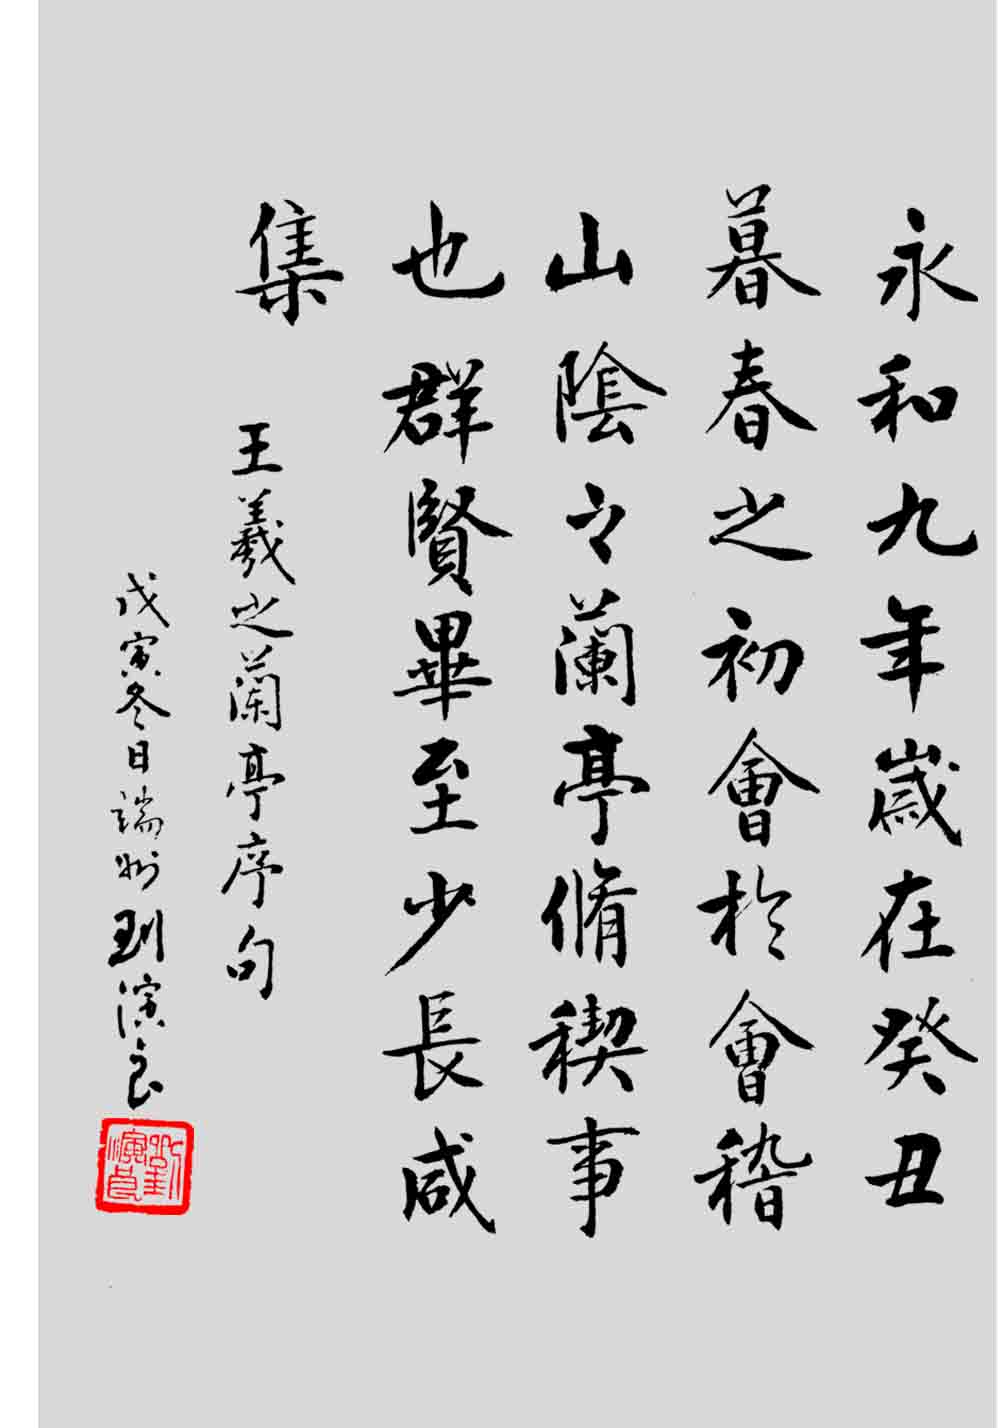 永和九年歲在癸丑
暮春之初會於會稽
山陰之蘭亭脩稧事
也群賢畢至少長咸
集
王羲之蘭亭序句
戊寅冬日端州劉演良
劉演良